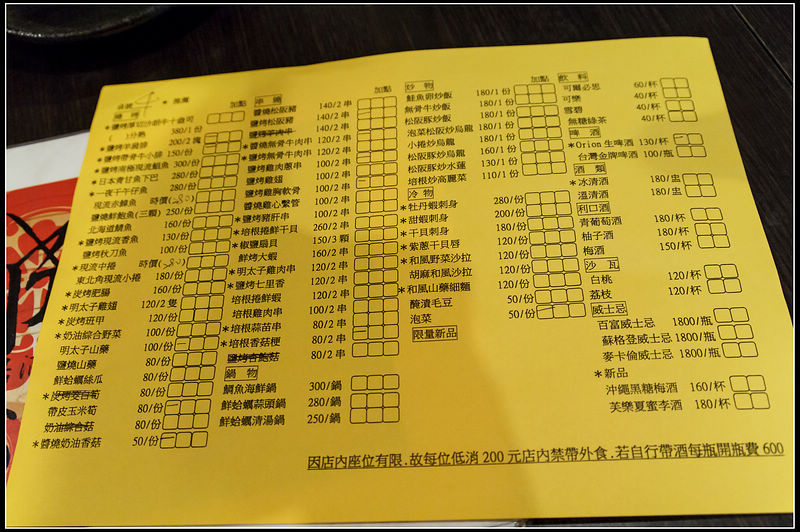 桌號 4 * 推薦 加點
燒烤
*鹽烤厚切沙朗牛十盎司
( )分熟 380/1份
*鹽烤羊肩排 200/2塊
*鹽烤帶骨牛小排 150/份
*鹽烤南極現流鯧魚 300/份
*日本青甘魚下巴 280/份
*一夜干午仔魚 280/份
現流赤鯮魚 時價
鹽燒鮮鮑魚(三顆) 250/份
北海道鯖魚 160/份
*鹽烤現流香魚 130/份
鹽烤秋刀魚 100/份
*現流中捲 時價
東北角現流小捲 180/份
*炭烤肥腸 160/份
*明太子雞翅 120/2隻
*炭烤班甲 150/份
*奶油綜合野菜 100/份
明太子山藥 100/份
鹽燒山藥 80/份
鮮蛤蠣絲瓜 80/份
*炭烤筊白筍 80/份
帶皮玉米筍 80/份
奶油綜合菇 80/份
*醬燒奶油香菇 50/份
串燒 加點
醬燒松阪豬 140/2串
鹽烤松阪豬 140/2串
鹽烤羊肉串 120/2串
*醬燒無骨牛肉串 140/2串
*鹽烤無骨牛肉串 140/2串
鹽烤雞肉蔥串 100/2串
鹽烤雞翅 100/2串
鹽烤雞胸軟骨 100/2串
醬燒雞心繫管 100/2串
*鹽烤豬肝串 100/2串
*培根捲鮮干貝 260/2串
*椒鹽扇貝 150/3顆
鮮烤大蝦 160/2串
*明太子雞肉串 120/2串
*鹽烤七里香 120/2串
培根捲鮮蝦 120/2串
培根雞肉串 100/2串
*培根蒜苗串 80/2串
*培根香菇梗 80/2串
鹽烤杏鮑菇 80/2串
鍋物
鯛魚海鮮鍋 300/鍋
鮮蛤蠣蒜頭鍋 280/鍋
鮮蛤蠣清湯鍋 250/鍋
炒物 加點
鮭魚卵炒飯 180/1份
無骨牛炒飯 180/1份
松阪豚炒飯 180/1份
泡菜松阪炒烏龍 180/1份
小捲炒烏龍 180/1份
松阪豚炒烏龍 160/1份
松阪豚炒水蓮 130/1份
培根炒高麗菜 110/1份
冷物
*牡丹蝦刺身 280/份
*甜蝦刺身 200/份
*干貝刺身 180/份
*紫蔥干貝唇 120/份
*和風野菜沙拉 120/份
胡麻和風沙拉 120/份
*和風山藥細麵 120/份
醃漬毛豆 50/份
泡菜 50/份
限量新品
飲料
可爾必思 60/杯
可樂 40/杯
雪碧 40/杯
無糖綠茶 40/杯
啤酒
*Orion生啤酒 130/杯
台灣金牌啤酒 100/瓶
酒類
*冰清酒 180/盅
溫清酒 180/盅
利口酒
青葡萄酒 180/杯
柚子酒 180/杯
梅酒 150/杯
沙瓦
白桃 120/杯
荔枝 120/杯
威士忌
百富威士忌 1800/瓶
蘇格登威士忌 1800/瓶
麥卡倫威士忌 1800/瓶
*新品
沖繩黑糖梅酒 160/杯
芙樂夏蜜李酒 180/杯
因店內座位有限.故每位低消 200 元店內禁帶外食.若自行帶酒每瓶開瓶費 600